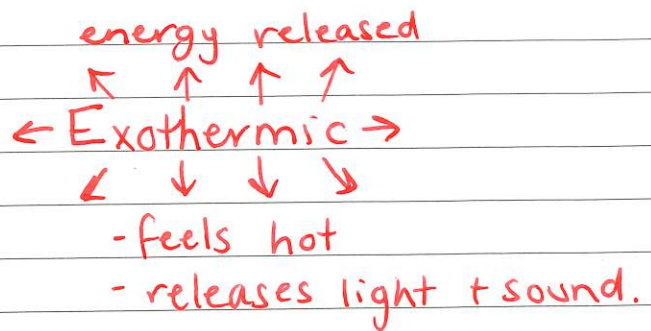 energy released
← Exothermic →
- feels hot
- releases light + sound.